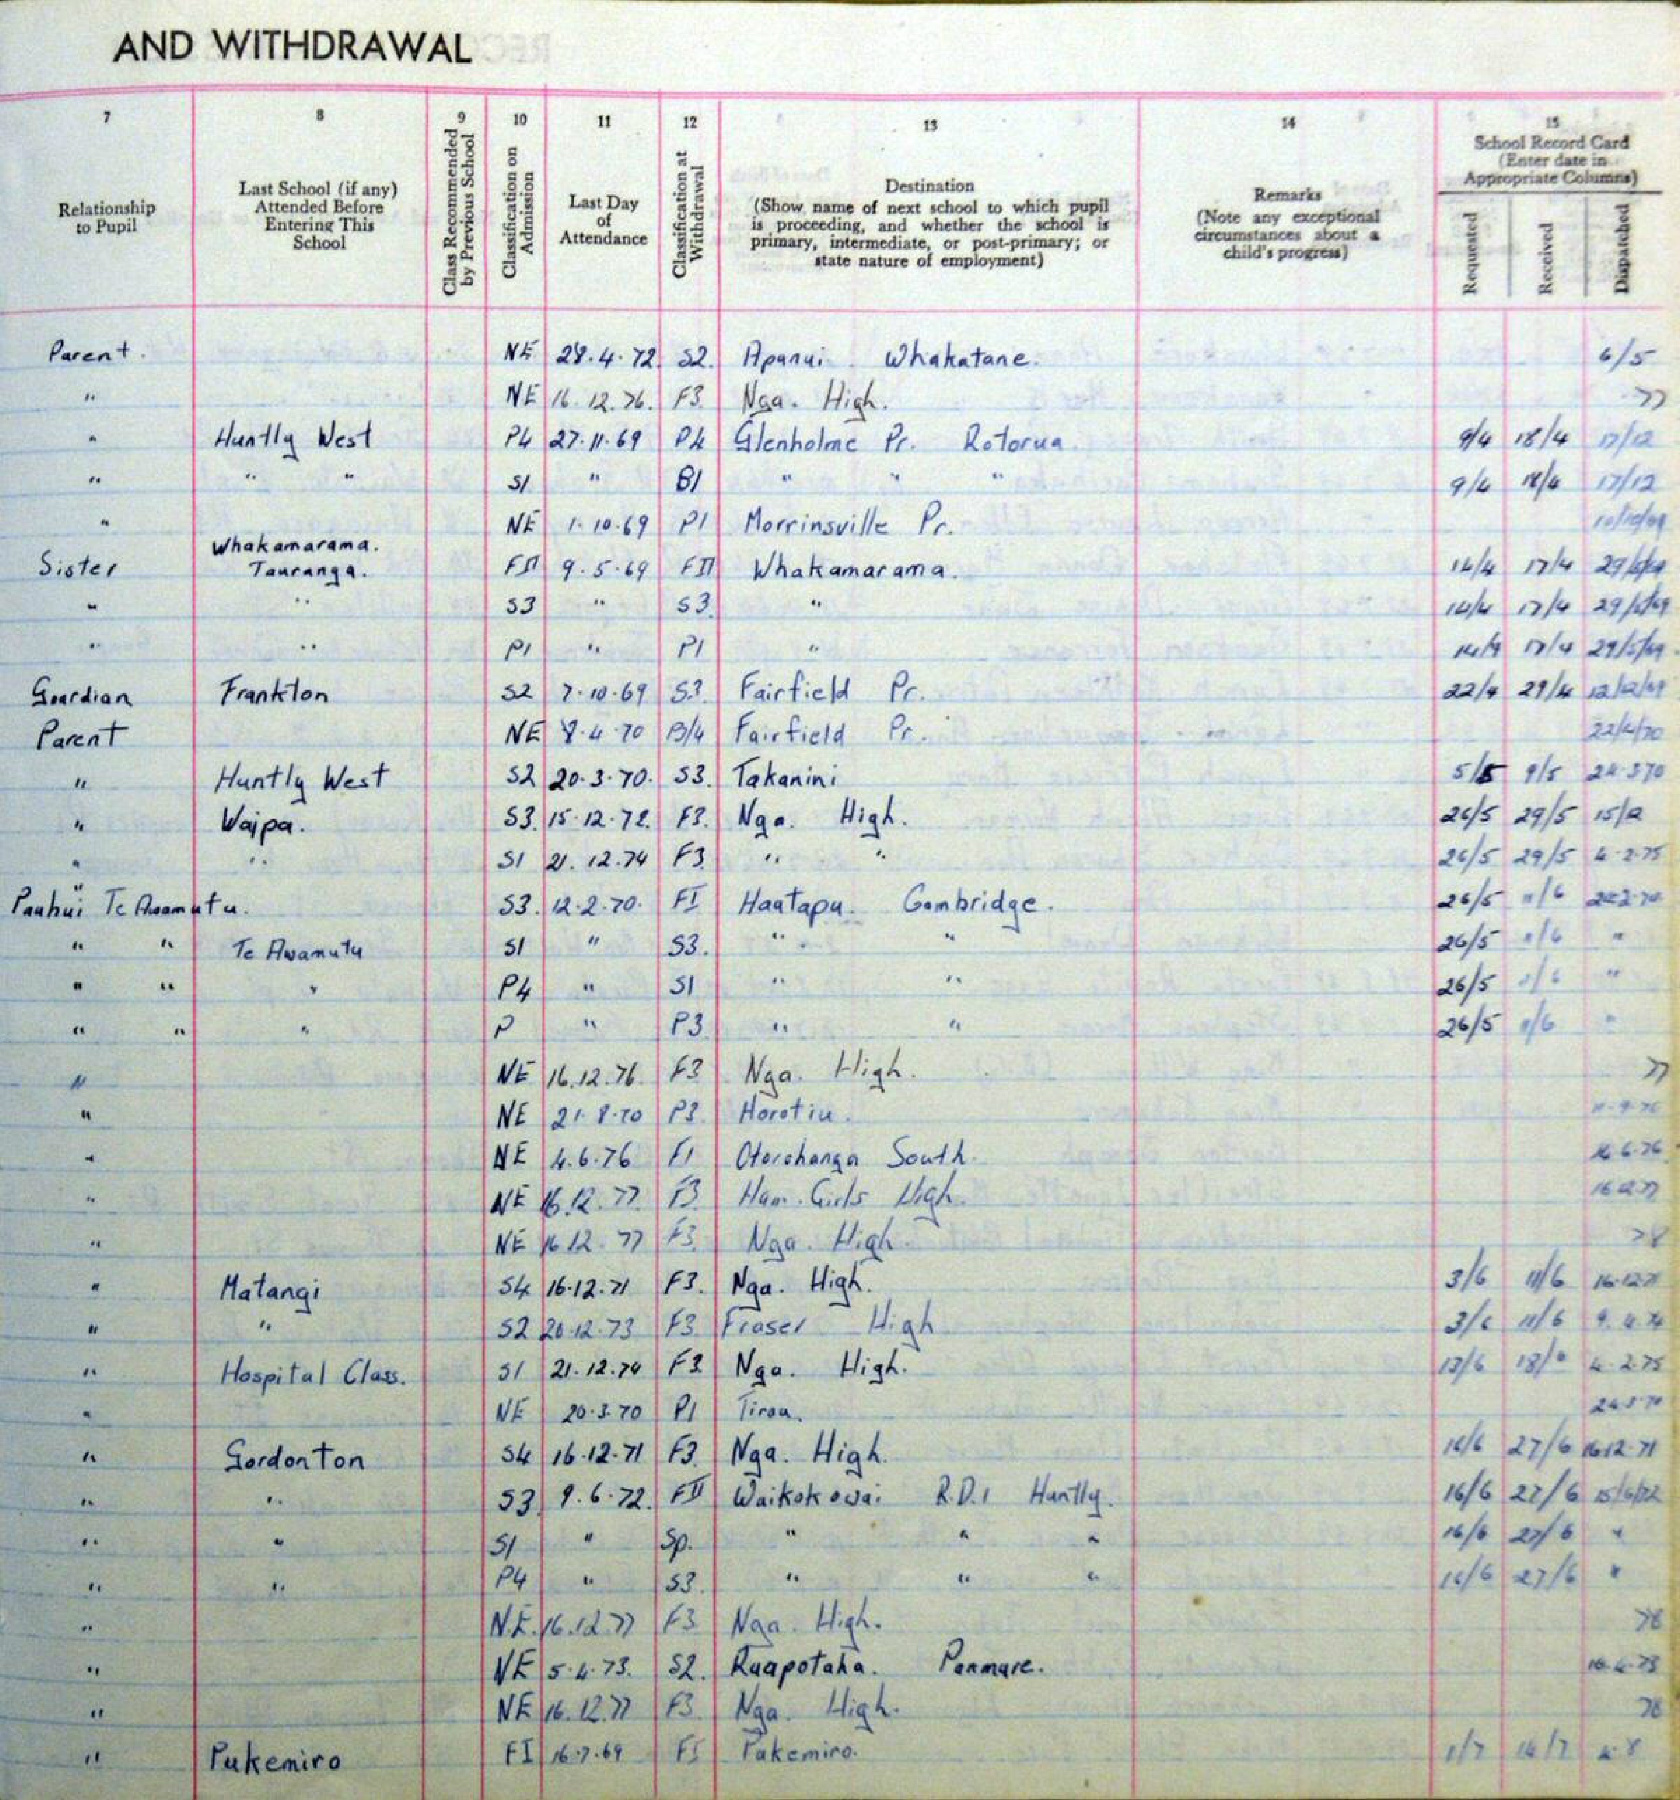 AND WITHDRAWAL
7 8 9 10 11 12 13 14 15
Relationship to Pupil
Last School (if any) Attended Before Entering This School
Class Recommended by Previous School
Classification on Admission
Last Day of Attendance
Classification at Withdrawal
Destination
(Show name of next school to which pupil
is proceeding, and whether the school is
primary, intermediate, or post-primary; or
state nature of employment)
Remarks
(Note any exceptional
circumstances about a
child's progress)
School Record Card
(Enter date in
Appropriate Columns)
Requested Received Dispatched
Parent. NE 28.4.72. S2. Apanui Whakatane. 6/5
" NE 16.12.76. F3. Nga. High. 77
" Huntly West P4 27.11.69 P4 Glenholme Pr. Rotorua. 9/4 18/4 17/12
" " " S1 " B1 " " " 9/4 18/4 17/12
" NE 1.10.69 P1 Morrinsville Pr. 10/10/69
Whakamarama.
Sister Tauranga. FII 9.5.69 FII Whakamarama. 14/4 17/4 29/5/69
" " S3 " S3. " 14/4 17/4 29/5/69
" " P1 " P1 " 14/4 17/4 29/5/69
Guardian Frankton S2 7.10.69 S3. Fairfield Pr. 22/4 29/4 12/12/69
Parent NE 8.4.70 B/4 Fairfield Pr. 22/4/70
" Huntly West S2 20.3.70. S3. Takanini 5/5 9/5 24.3.70
" Waipa. S3. 15.12.72. F3. Nga. High. 26/5 29/5 15/2
" " S1 21.12.74 F3. " " 26/5 29/5 4.2.75
"
Paahui Te Awamutu. S3. 12.2.70. FI Hautapu. Cambridge. 26/5 11/6
" " Te Awamutu S1 " S3. " " 26/5 11/6 "
" " " P4 " S1 " " 26/5 11/6 "
" " " P " P3. " " 26/5 11/6 "
" NE 16.12.76. F3 Nga. High. 77
" NE 21.8.70 P3. Horotiu.
" NE 4.6.76 F1 Otorohanga South.
" NE 16.12.77 F3. Ham. Girls High.
" NE 16.12.77 F3. Nga. High. 78
" Matangi S4 16.12.71 F3. Nga. High. 3/6 11/6 16.12.71
" " S2 20.12.73 F3. Fraser High 3/6 11/6 9.4.74
" Hospital Class. S1 21.12.74 F3. Nga. High. 13/6 4.2.75
" NE 20.3.70 P1 Tiroa. 24.3.70
" Gordonton S4 16.12.71 F3. Nga. High. 16/6 27/6 16.12.71
" " S3. 9.6.72. FII Waikokowai R.D.1 Huntly. 16/6 27/6 15/6/72
" " S1 " Sp. " " " 16/6 27/6 "
" " P4 " S3. " " " 16/6 27/6 "
" NE. 16.12.77 F3 Nga. High. 78
" NE 5.4.73. S2. Ruapotaka. Panmure. 10.4.73
" NE 16.12.77 F3. Nga. High. 78
" Pukemiro FI 16.7.69 FI Pukemiro. 1/7 14/7